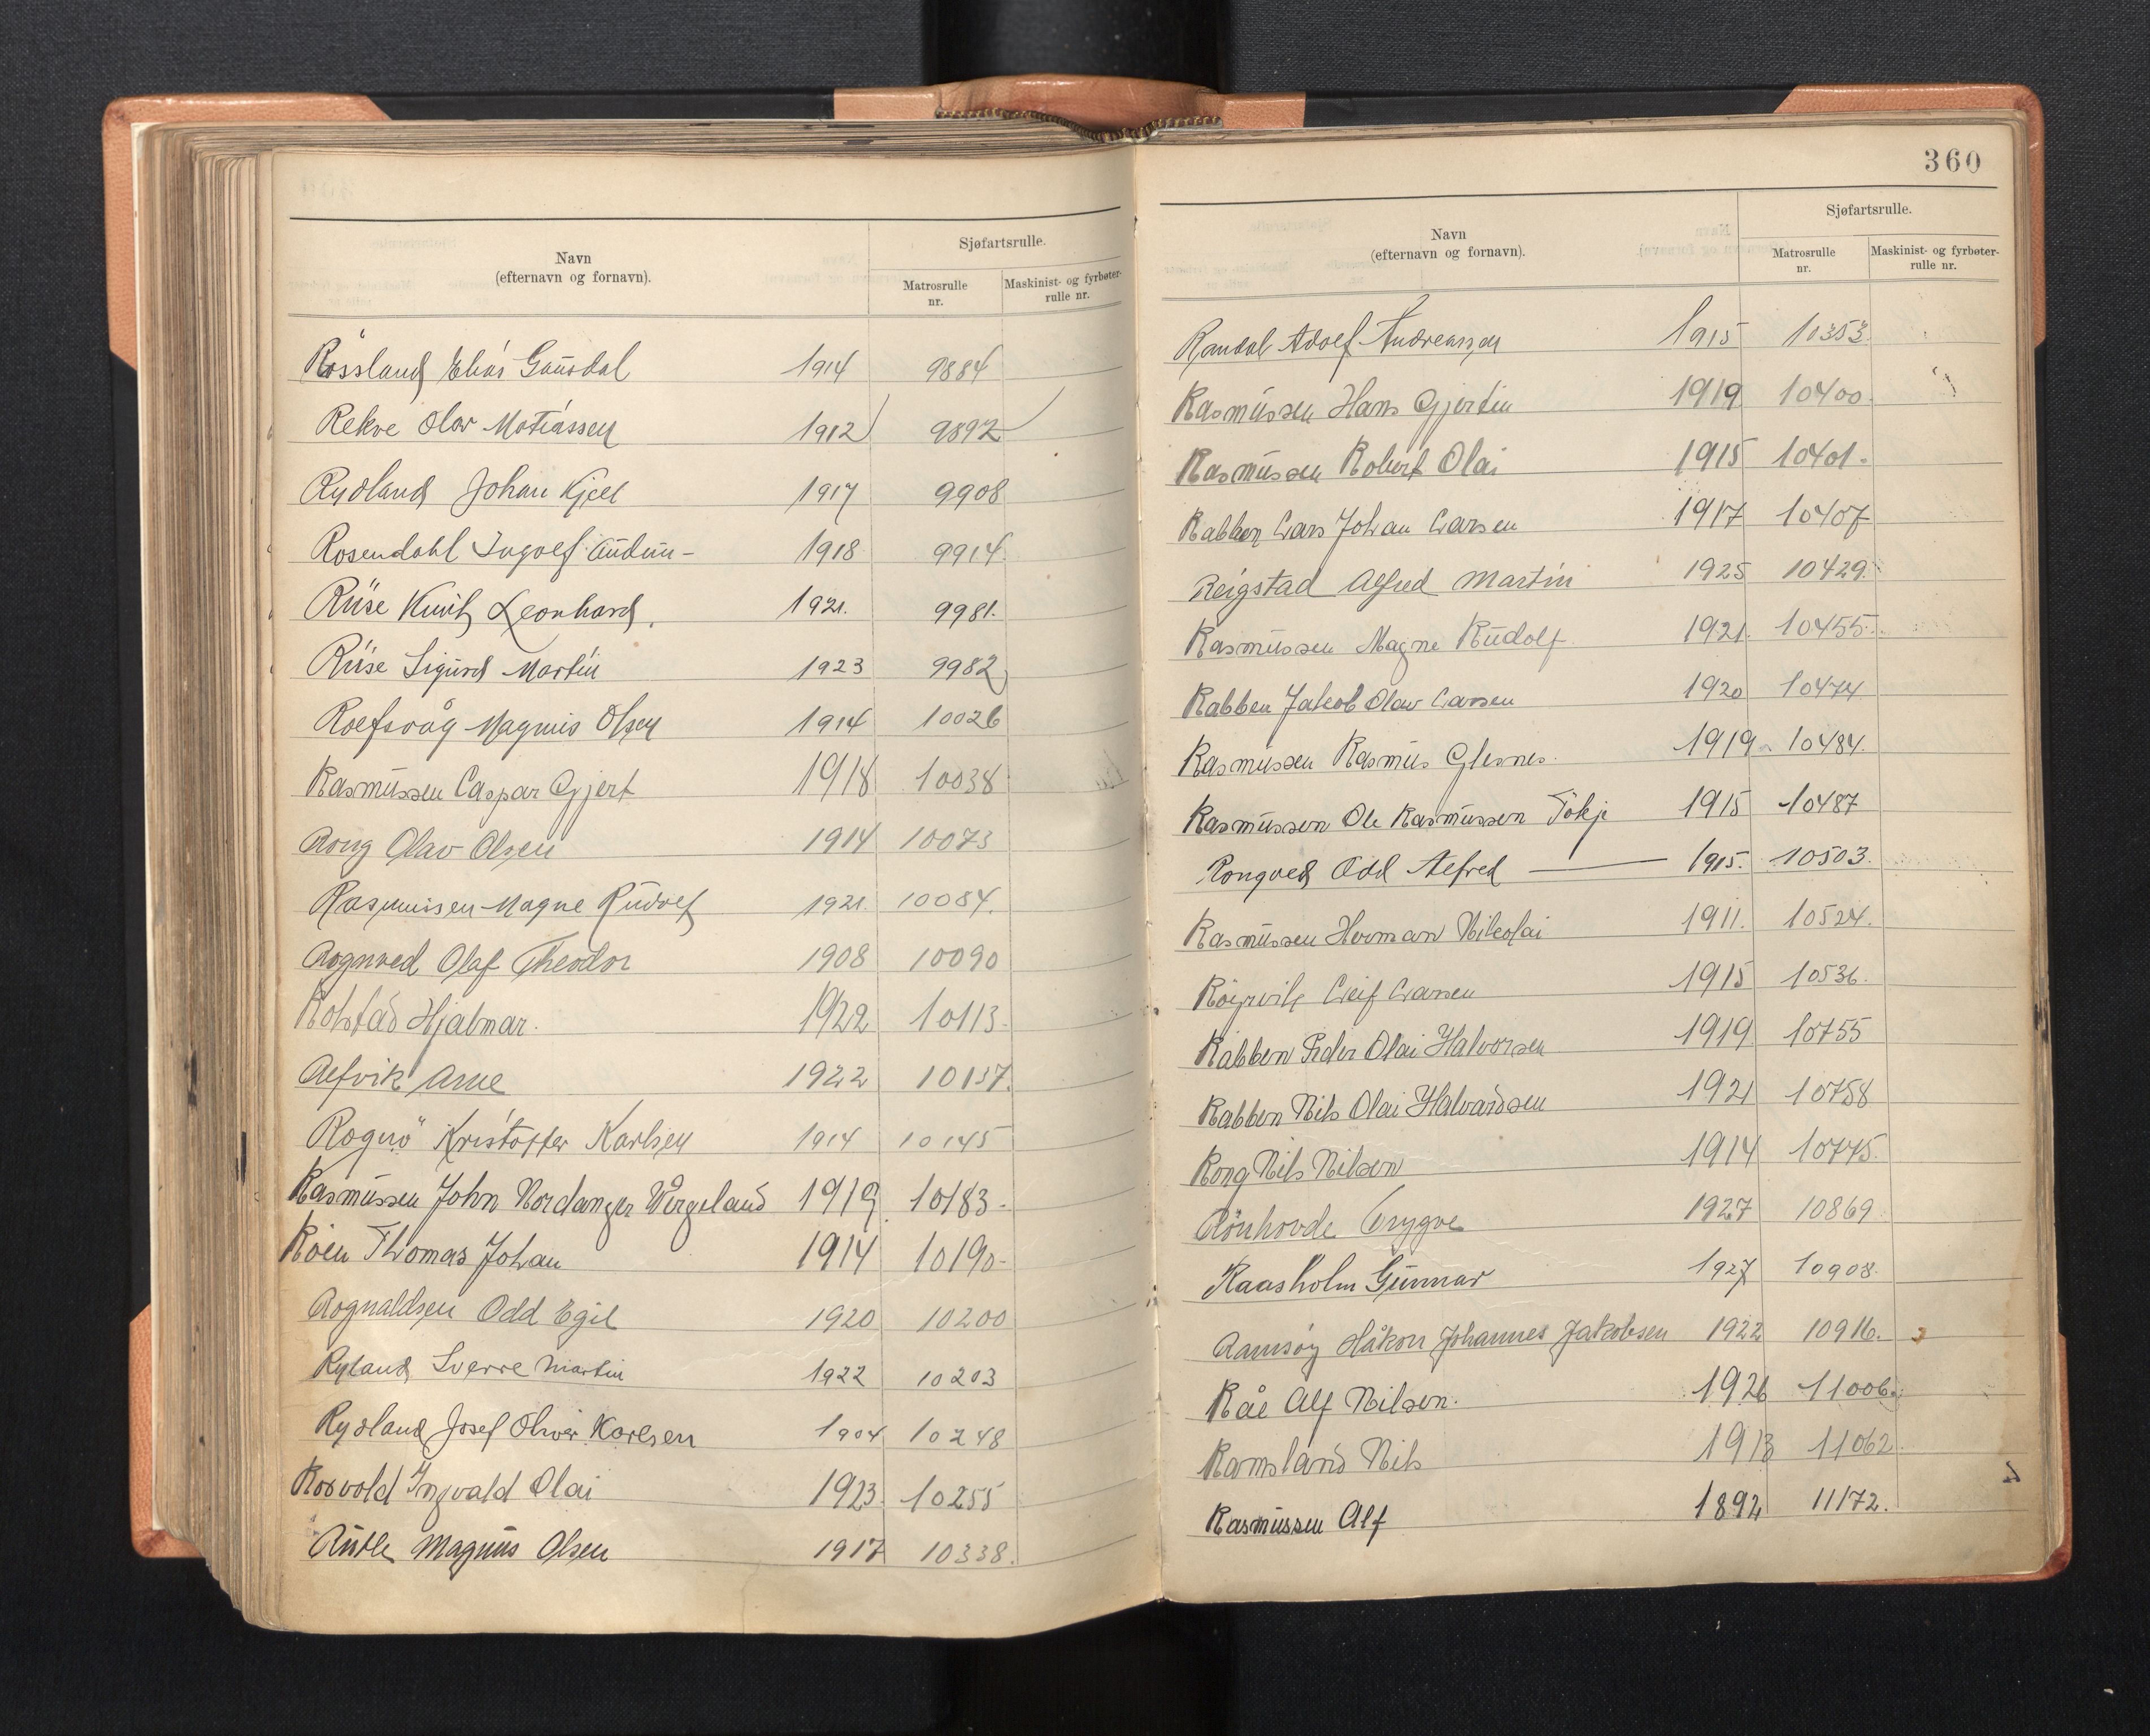 Navn
(efternavn og fornavn).
Sjøfartsrulle.
Matrosrulle
nr.
Maskinist- og fyrbøter-
rulle nr.
Røssland Elias Gausdal 1914 9884
Rekve Olav Matiassen 1912 9892
Rydland Johan Kjell 1917 9908
Rosendahl Ingolf Audun- 1918 9914
Riise Kurt Leonhard. 1921. 9981.
Riise Sigurd Martin 1923 9982
Rolfsvåg Magnus Olsen 1914 10026
Rasmussen Caspar Gjert 1918 10038
Rong Olav Olsen 1914 10073
Rasmussen Magne Rudolf 1921. 10084.
Rognved Olaf Theodor 1908 10090
Rolstad Hjalmar. 1922 10113.
Refvik Arne 1922 10137.
Rognø Kristoffer Karlsen 1914 10145
Rasmussen John Nordanger Wergeland 1919. 10183.
Roen Thomas Johan 1914 10190-
Rognaldsen Odd Egil 1920 10200
Ryland Sverre Martin 1922 10203
Rydland Josef Oliver Karlsen 1904 10248
Rosvold Ingvald Olai 1923. 10255
Rutle Magnus Olsen 1917 10338.
360
Navn
(efternavn og fornavn).
Sjøfartsrulle.
Matrosrulle
nr.
Maskinist- og fyrbøter-
rulle nr.
Randal Adolf Andreassen 1915 10353
Rasmussen Hans Gjertin 1919 10400.
Rasmussen Robert Olai 1915 10401.
Rabben Lars Johan Larsen 1917 10407
Reigstad Alfred Martin 1925 10429.
Rasmussen Magne Rudolf 1921. 10455.
Rabben Jakob Olav Larsen 1920 10474
Rasmussen Rasmus Glesnes. 1919 10484.
Rasmussen Ole Rasmussen 1915 10487
Rongved Odd Alfred 1915. 10503.
Rasmussen Herman Nikolai 1911. 10524.
Leif Larsen 1915 10536.
Rabben Peder Olai Halvorsen 1919 10755
Rabben Nils Olai Halvardsen 1921 10758
Rong Nils Nilsen 1914 10775.
Rönhovde Trygve 1927 10869
Raasholm Gunnar 1927 10908.
Ramsøy Håkon Johannes Jakobsen 1922 10916.
Råe Alf Nilsen. 1926 11006.
Ramsland Nils 1913 11062
Rasmussen Alf 1892 11172.